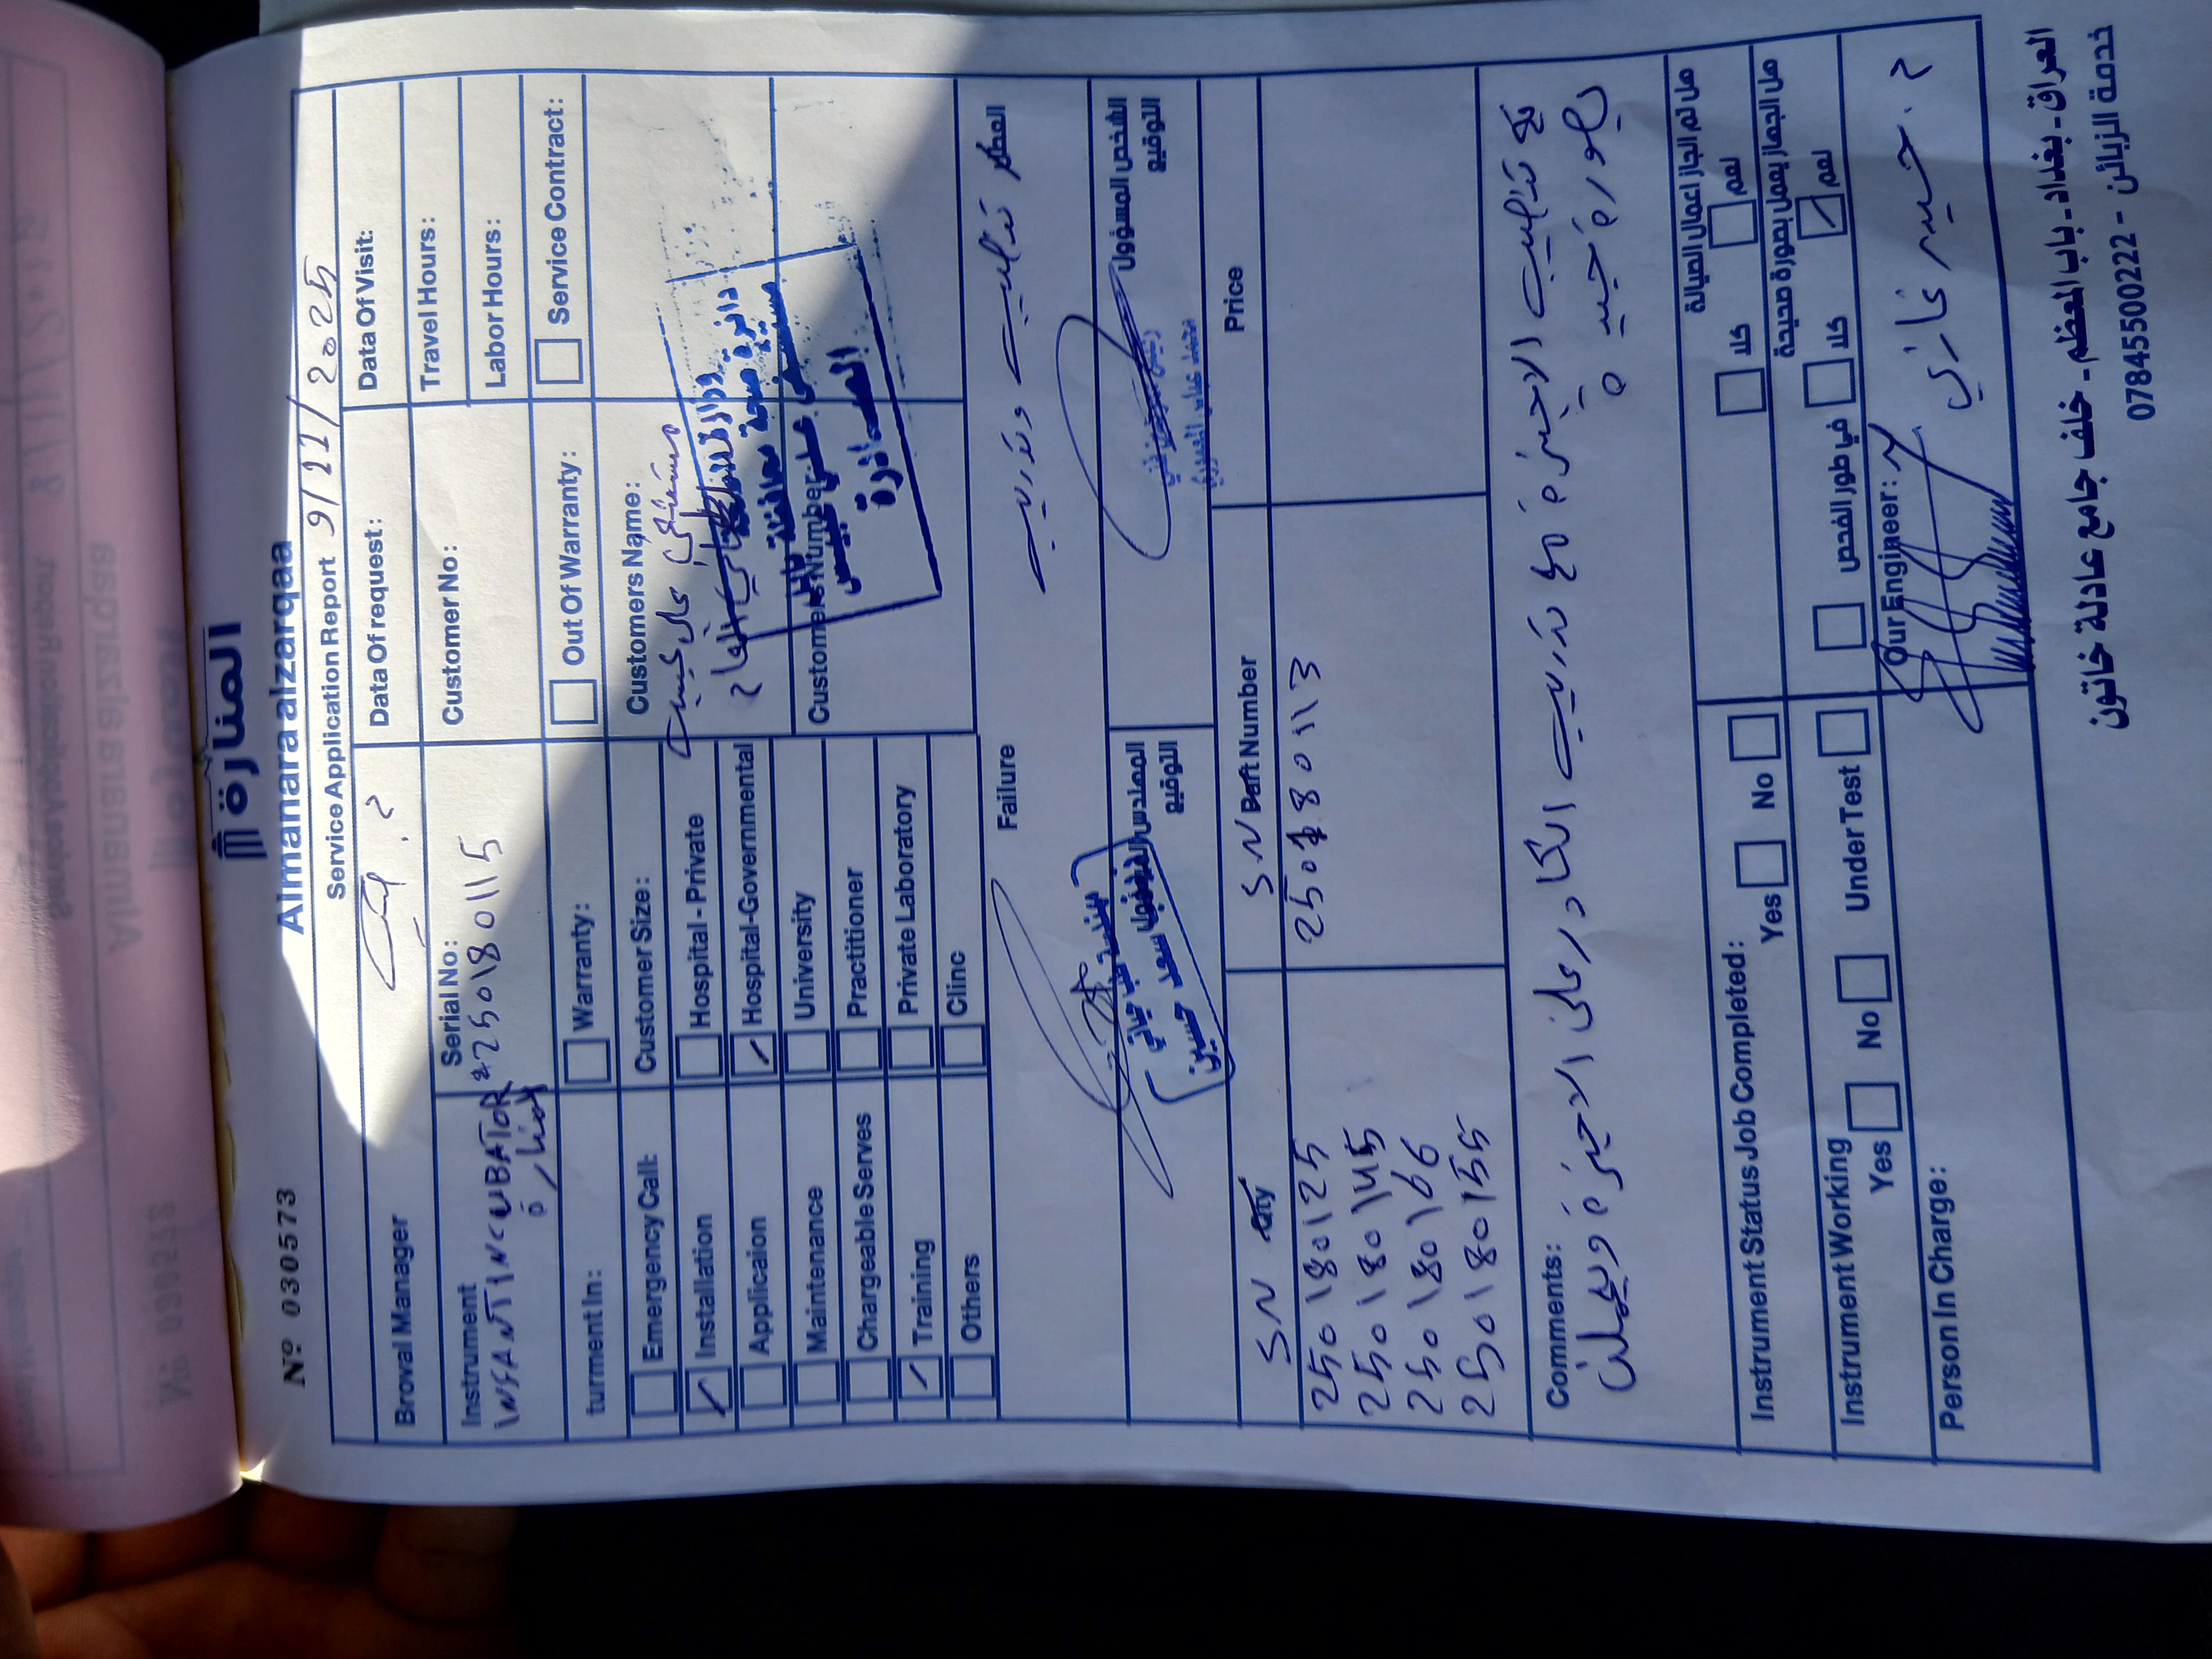 المنارة
Almanara alzarqaa
Nº 030573
Service Application Report 9/11/2025
Broval Manager
Data Of request:
Data Of Visit:
Instrument
INFANT INCUBATOR
Serial No:
250180115
Customer No:
Travel Hours:
Labor Hours:
turment In:
Warranty:
Out Of Warranty:
Service Contract:
Emergency Call:
Customer Size:
Customers Name:
مستشفى
Installation
Hospital - Private
Applicaion
Hospital-Governmental
Maintenance
University
Customers Number
Chargeable Serves
Practitioner
Training
Private Laboratory
Others
Clinc
وزارة الصحة
دائرة صحة
الصادرة
Failure
العطل
تنصيب وتدريب
المهندس المسؤول
التوقيع
الشخص المسؤول
التوقيع
سعد حسين
S N Qty
S N Part Number
Price
250180125
250180113
250180145
250180166
250180155
Comments:
تم تنصيب الاجهزة مع تدريب الكادر على الاجهزة ويعملن
بصورة جيدة
Instrument Status Job Completed:
Yes
No
هل تم انجاز اعمال الصيانة
كلا
نعم
Instrument Working
Yes
No
Under Test
هل الجهاز يعمل بصورة صحيحة
في طور الفحص
كلا
نعم
Person In Charge:
Our Engineer:
العراق - بغداد - باب المعظم - خلف جامع عادلة خاتون
خدمة الزبائن - 07845500222